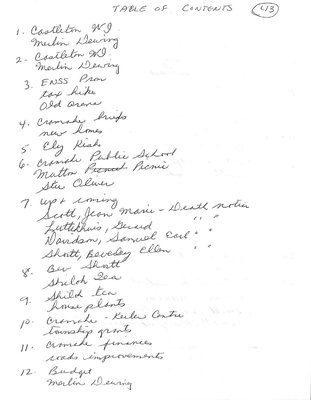 TABLE OF CONTENTS
43
1. Castleton W.I.
Merlin Dewing
2. Castleton W.I.
Merlin Dewing
3. ENSS Prom
tax hike
old arena
4. Cramahe briefs
new homes
5. Ely Kish
6. Cramahe Public School
Mutton Picnic Picnic
Stu Oliver
7. up & coming
Scott, Jean Marie - Death notice
Luttikhuis, Gerard " "
Davidson, Samuel Earl " "
Shortt, Beverley Ellen " "
8. Bev Shortt
Shiloh Tea
9. Shiloh tea
house plants
10. Cramahe - Keeler Centre
township grants
11. Cramahe finances
roads improvements
12. Budget
Merlin Dewing